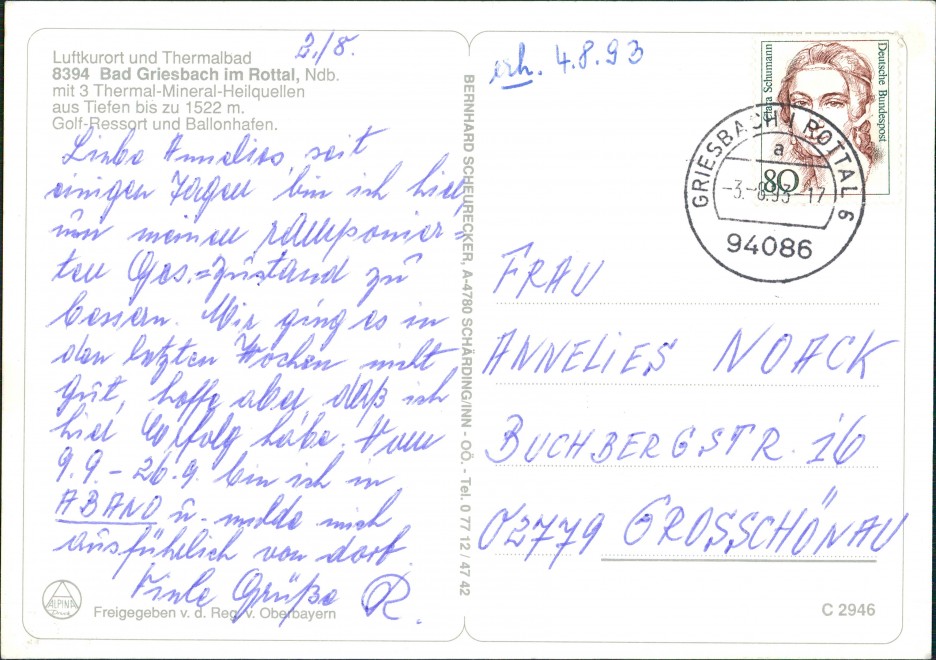 2./8.
Luftkurort und Thermalbad
8394 Bad Griesbach im Rottal, Ndb.
mit 3 Thermal-Mineral-Heilquellen
aus Tiefen bis zu 1522 m.
Golf-Ressort und Ballonhafen.
Liebe Annelies, seit
einigen Tagen bin ich hier,
um meinen ramponier=
ten Ges.=Zustand zu
bessern. Mir ging es in
den letzten Wochen nicht
gut, hoffe aber daß ich
hier Erfolg habe. Vom
9.9. - 26.9. bin ich in
ABANO u. melde mich
ausführlich von dort.
Viele Grüße R.
ALPINA
Freigegeben v. d. Reg. v. Oberbayern
BERNHARD SCHEURECKER, A-4780 SCHÄRDING/INN - OÖ. - Tel. 0 77 12 / 47 42
erh. 4.8.93
Clara Schumann
Deutsche Bundespost
80
GRIESBACH I ROTTAL 6
a
-3.-8.93-17
94086
FRAU
ANNELIES NOACK
BUCHBERGSTR. 16
02779 GROSSCHÖNAU
C 2946